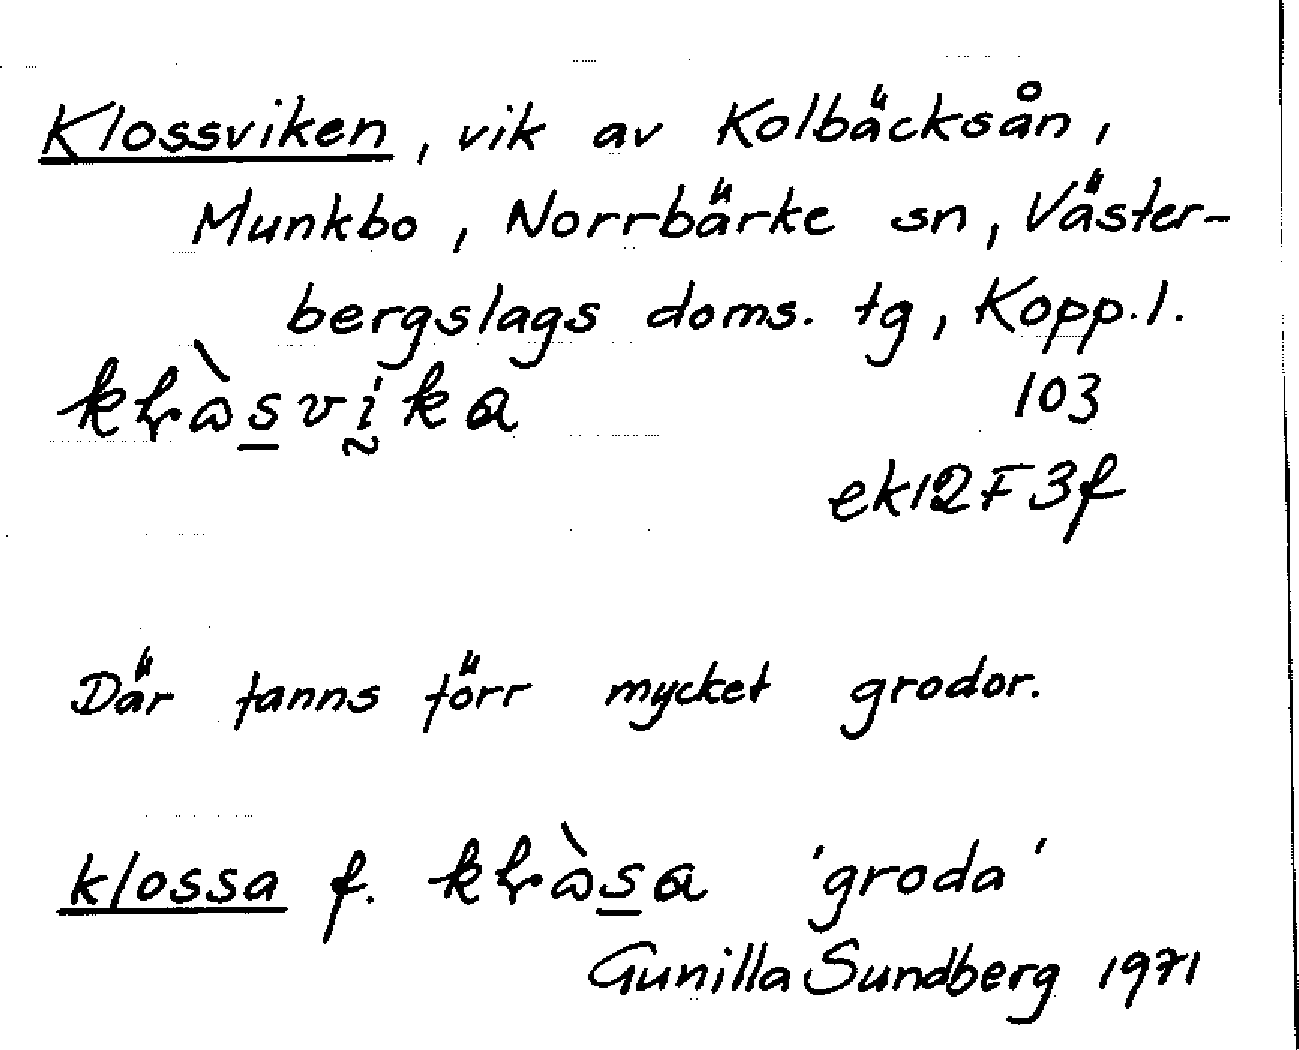 Klossviken, vik av Kolbäcksån,
Munkbo, Norrbärke sn, Väster-
bergslags doms. tg, Kopp. l.
103
ek12F3f
Där fanns förr mycket grodor.
klossa f. 'groda'
Gunilla Sundberg 1971